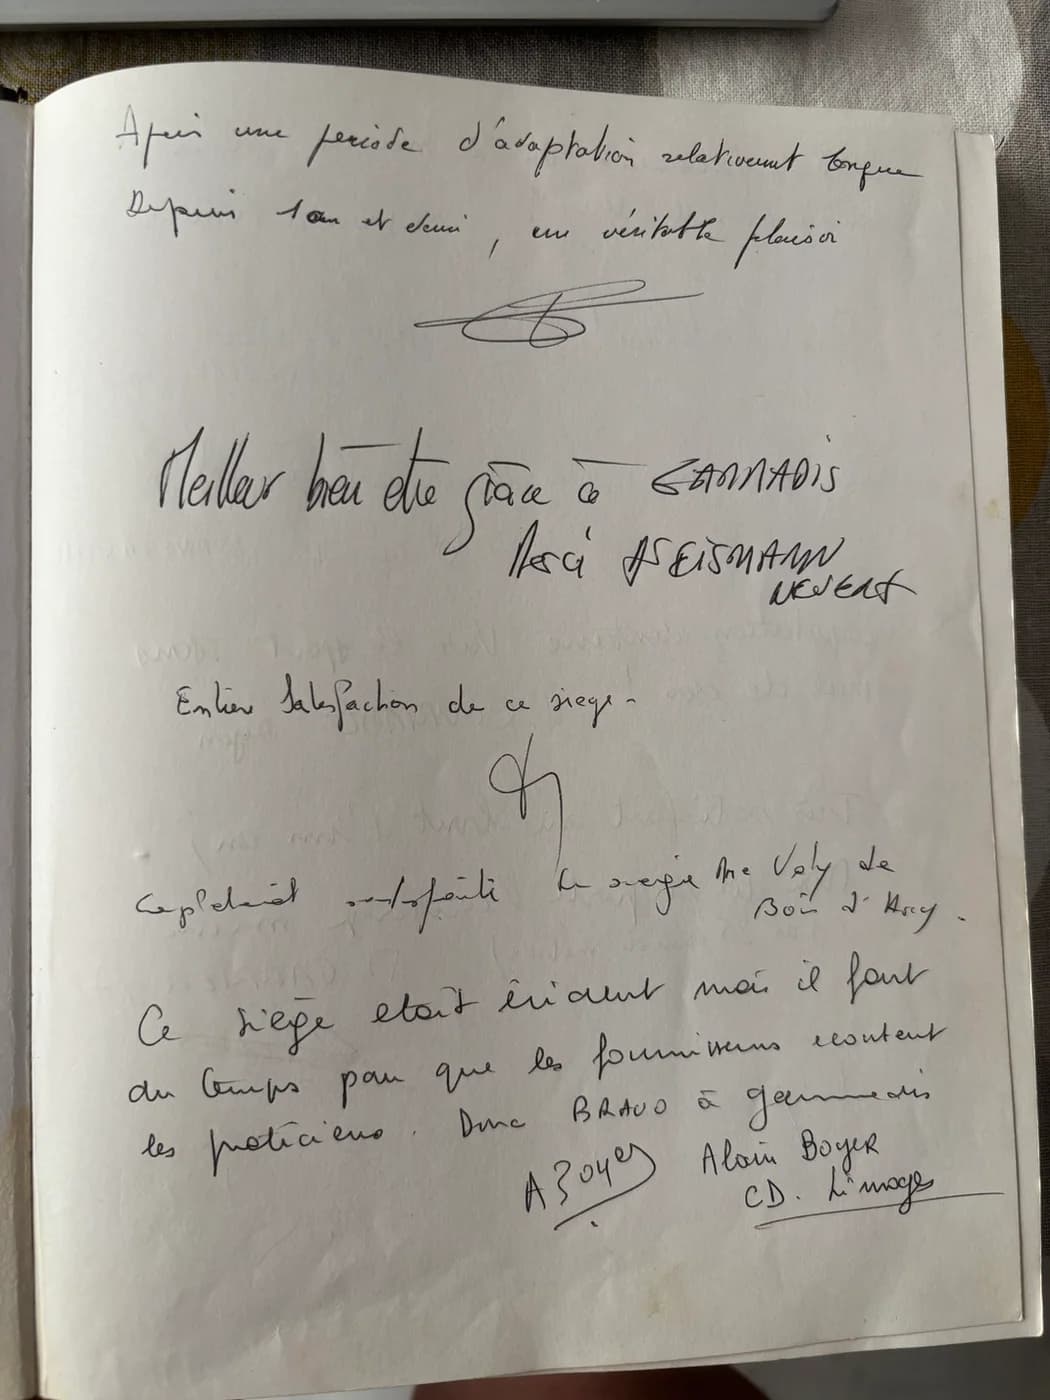 Après une periode d'adaptation relativement longue
Depuis 1 an et demi, un véritable plaisir
Meilleur bien être grâce à GAMMADIS
Merci
NEVERS
Entière Satisfaction de ce siege -
Le siege Me Valy de
Bois d'Arcy.
Ce siège etait évident mais il faut
du temps pour que les fournisseurs ecoutent
les praticiens. Donc BRAVO à gammadis
A Boyer Alain BOYER
CD. Limoges